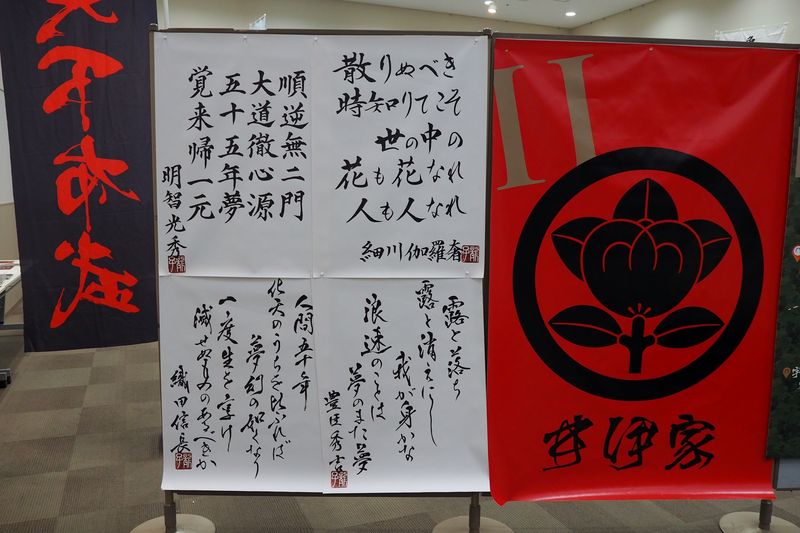 天下布武
順逆無二門
大道徹心源
五十五年夢
覚来帰一元
明智光秀
散りぬべき
時知りてこそ
世の中の
花も花なれ
人も人なれ
細川伽羅奢
人間五十年
化天のうちを比ぶれば
夢幻の如くなり
一度生を享け
滅せぬもののあるべきか
織田信長
露と落ち
露と消えにし
我が身かな
浪速のことは
夢のまた夢
豊臣秀吉
II
井伊家